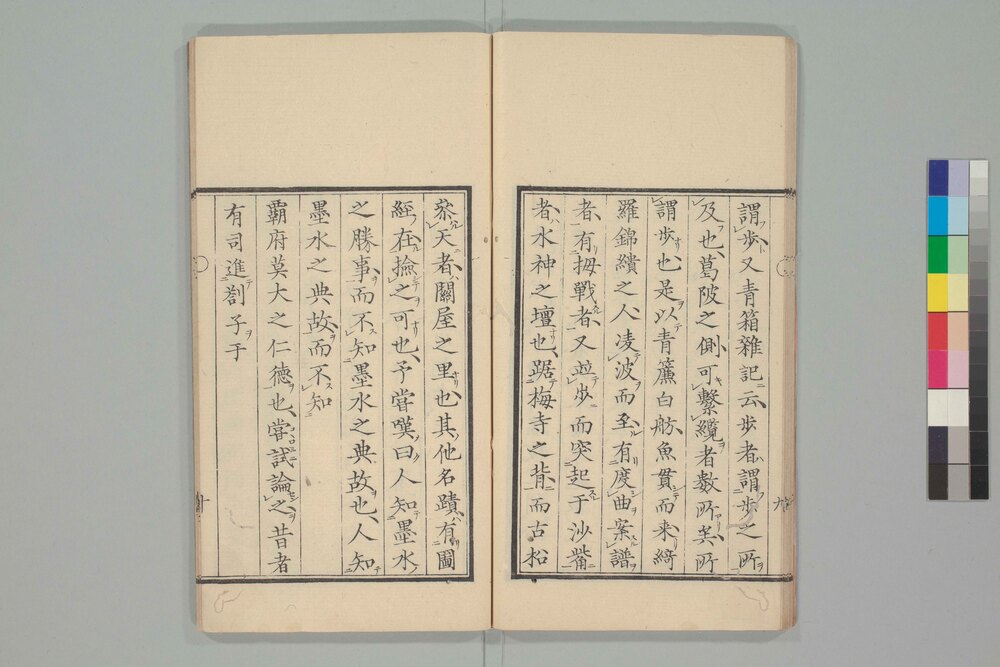 謂歩又青箱雜記云歩者謂歩之所
及也葛陂之側可繫纜者数所矣所
謂歩也是以青簾白舫魚貫而来綺
羅錦繢之人凌波而至有度曲案譜
者有拇戰者又並歩而突起于沙觜
者水神之壇也踞梅寺之背而古松
叅天者關屋之里也其他名蹟有圖
經在撿之可也予嘗嘆曰人知墨水
之勝事而不知墨水之典故也人知
墨水之典故而不知
覇府莫大之仁德也嘗試論之昔者
有司進劄子于